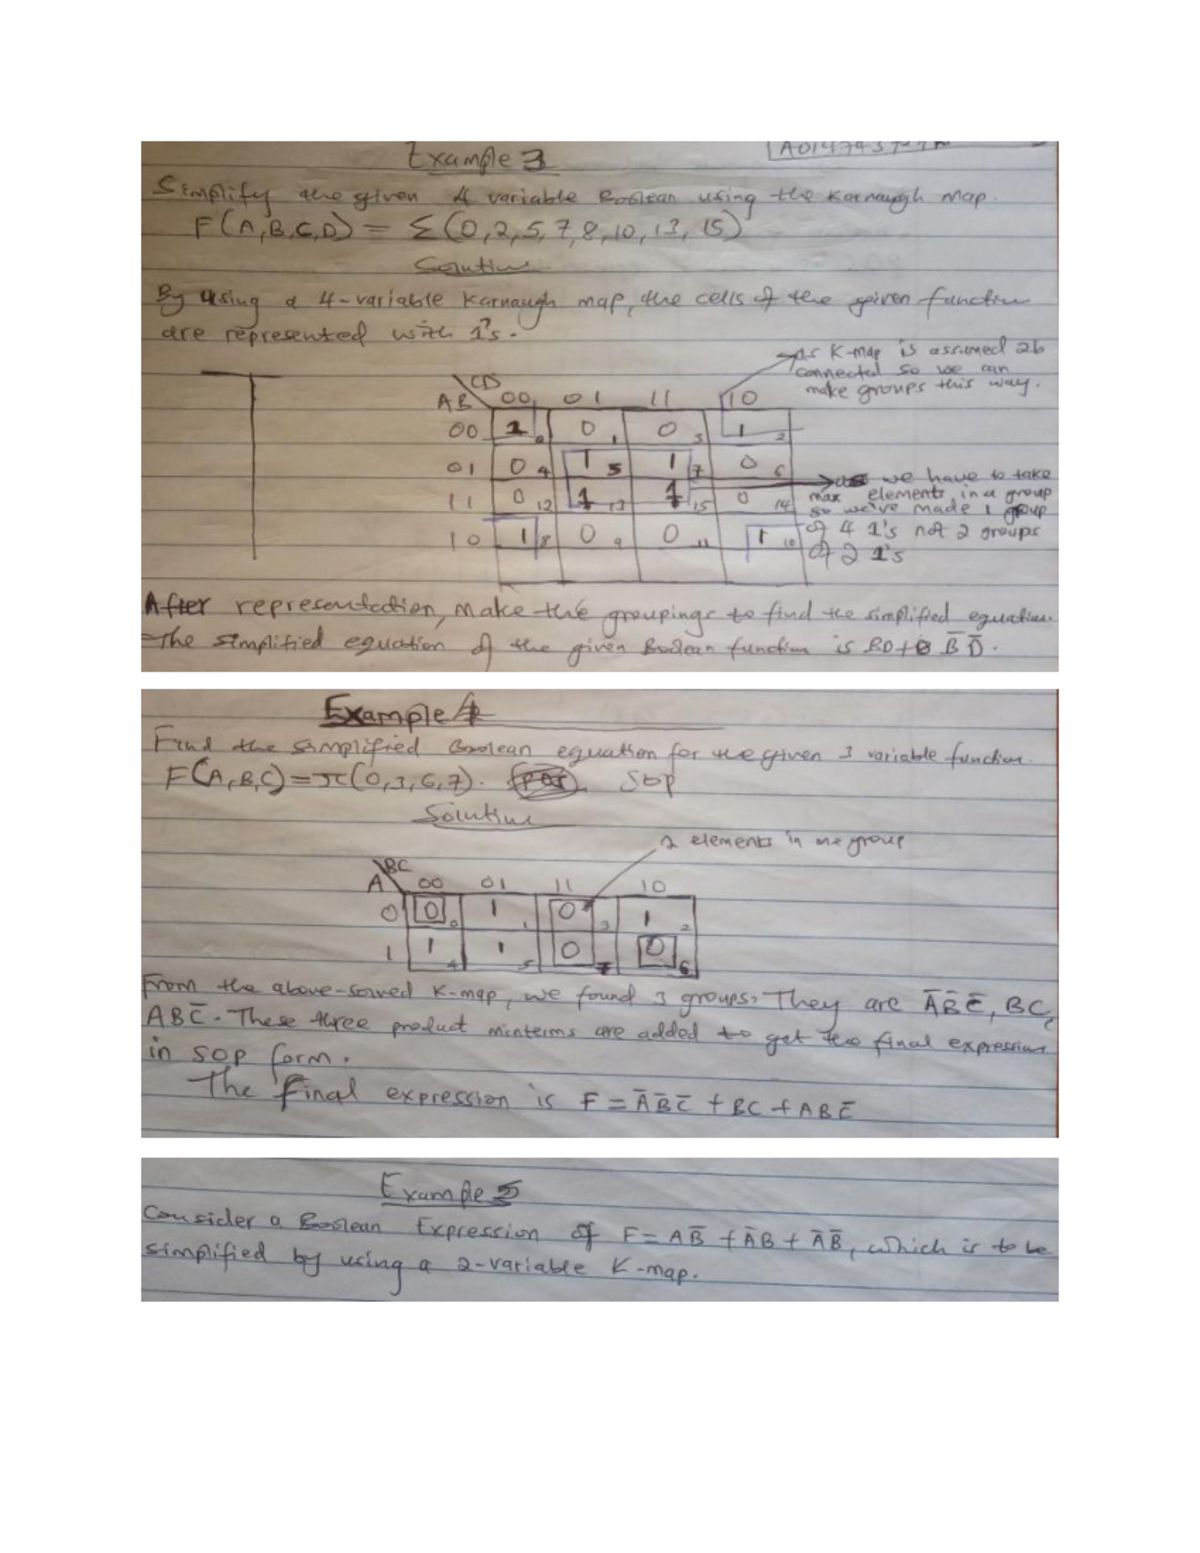 Example 3
Simplify the given 4 variable Boolean using the Karnaugh Map.
F(A,B,C,D) = Σ(0,2,5,7,8,10,13,15)
Solution
By using a 4-variable Karnaugh map, the cells of the given function
are represented with 1's.
as K-map is assumed 2b
connected so we can
make groups this way.
CD
AB 00 01 11 10
00 1 0 0 1 3 1 2
01 0 4 1 5 1 7 0 6
11 0 12 1 13 1 15 0 14
10 1 8 0 9 0 11 1 10
as we have to take
max elements in a group
so we've made 1 group
of 4 1's not 2 groups
of 2 1's
After representation, make the groupings to find the simplified equation.
The simplified equation of the given Boolean function is BD + B̅ D̅.
Example 4
Find the simplified Boolean equation for the given 3 variable function.
F(A,B,C) = π(0,3,6,7). SOP
Solution
2 elements in one group
BC
A 00 01 11 10
0 0 0 1 1 0 3 1 2
1 1 4 1 5 0 7 0 6
From the above-solved K-map, we found 3 groups. They are A̅B̅C̅, BC,
ABC̅. These three product minterms are added to get the final expression
in SOP form.
The final expression is F = A̅B̅C̅ + BC + ABC̅
Example 5
Consider a Boolean Expression of F = AB̅ + A̅B + A̅B̅, which is to be
simplified by using a 2-variable K-map.